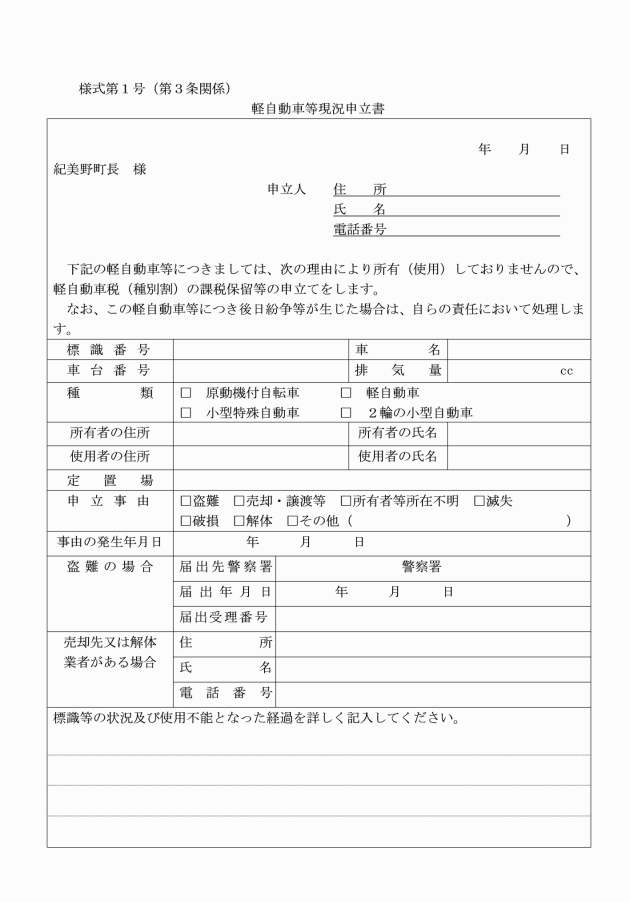 様式第１号（第３条関係）
軽自動車等現況申立書
年　　月　　日
紀美野町長　様
申立人　　住　　所
氏　　名
電話番号
下記の軽自動車等につきましては、次の理由により所有（使用）しておりませんので、
軽自動車税（種別割）の課税保留等の申立てをします。
なお、この軽自動車等につき後日紛争等が生じた場合は、自らの責任において処理しま
す。
標識番号　車名
車台番号　排気量　cc
種類　□　原動機付自転車　□　軽自動車
□　小型特殊自動車　□　２輪の小型自動車
所有者の住所　所有者の氏名
使用者の住所　使用者の氏名
定置場
申立事由　□盗難　□売却・譲渡等　□所有者等所在不明　□滅失
□破損　□解体　□その他（　　　）
事由の発生年月日　年　　月　　日
盗難の場合　届出先警察署　警察署
届出年月日　年　　月　　日
届出受理番号
売却先又は解体　住所
業者がある場合　氏名
電話番号
標識等の状況及び使用不能となった経過を詳しく記入してください。